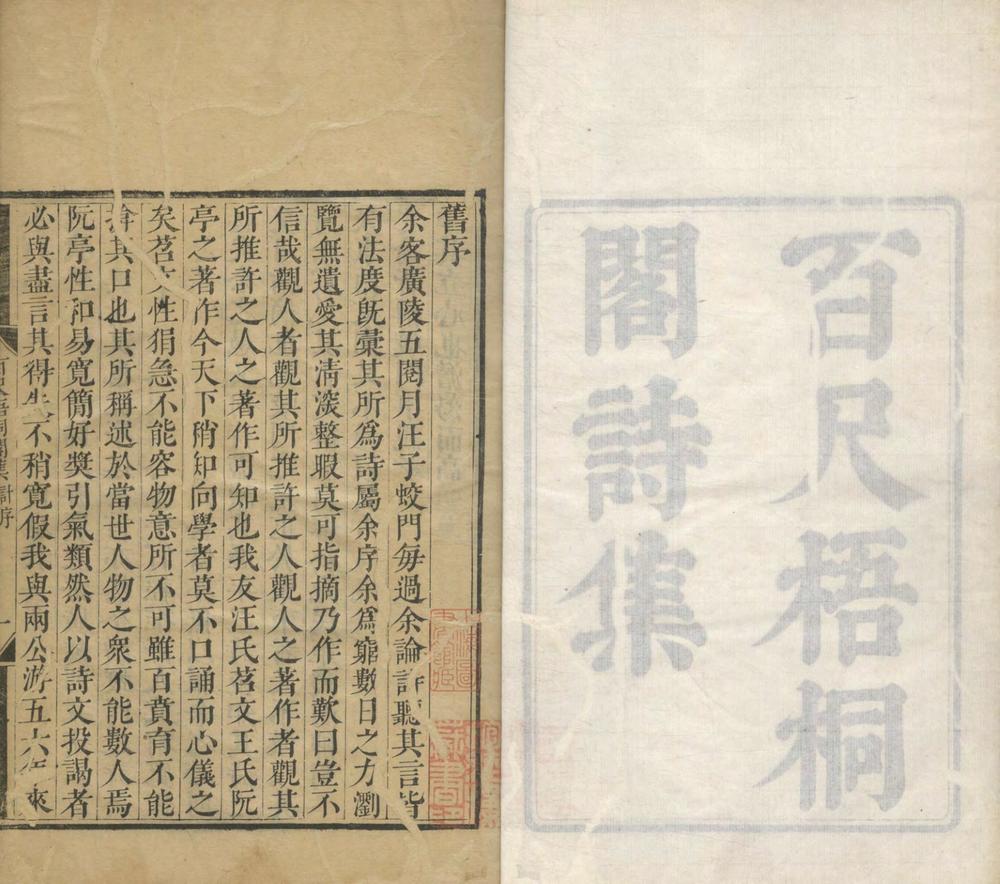 百尺梧桐
閣詩集
舊序
余客廣陵五閱月汪子蛟門每過余論詩聽其言皆
有法度旣彙其所爲詩屬余序余爲窮數日之力瀏
覽無遺愛其淸深整暇莫可指摘乃作而歎曰豈不
信哉觀人者觀其所推許之人觀人之著作者觀其
所推許之人之著作可知也我友汪氏苕文王氏阮
亭之著作今天下稍知向學者莫不口誦而心儀之
矣苕文性狷急不能容物意所不可雖百賁育不能
揜其口也其所稱述於當世人物之衆不能數人焉
阮亭性和易寬簡好獎引氣類然人以詩文投謁者
必與盡言其得失不稍寬假我與兩公游五六年來